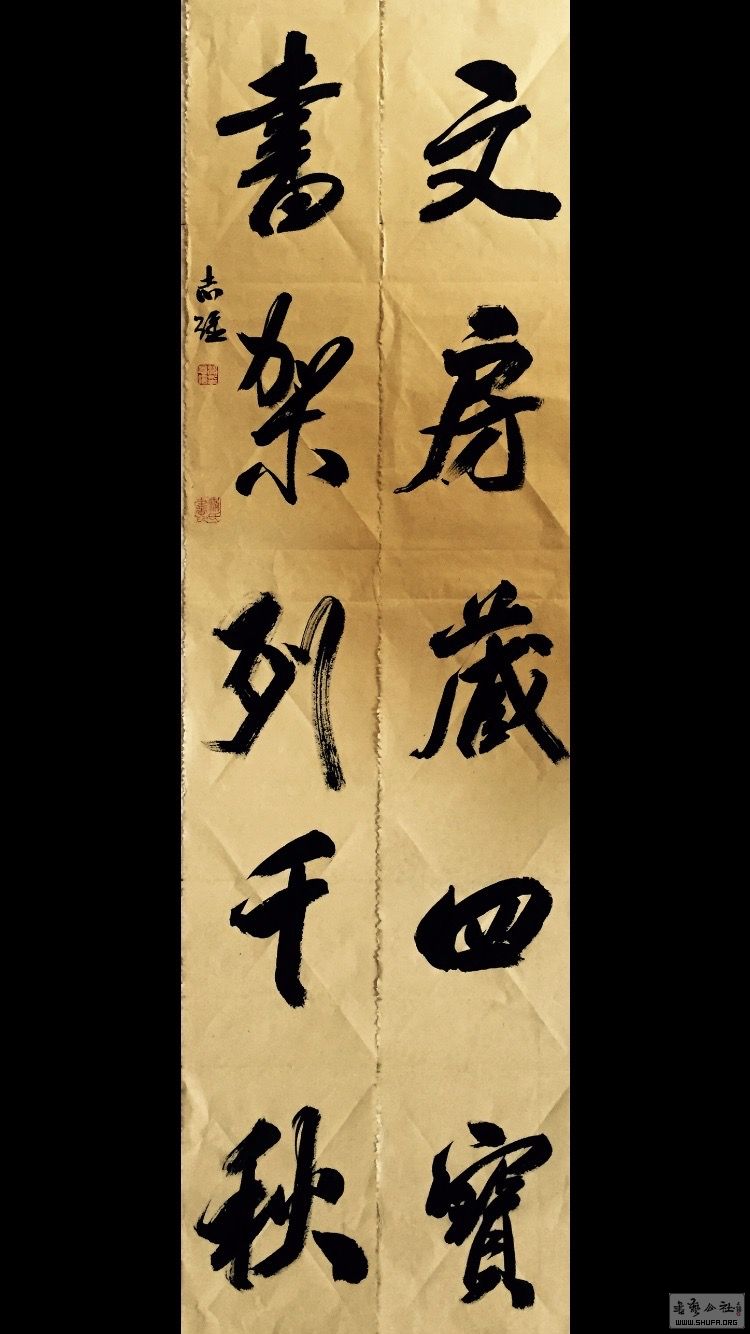 文房藏四寶
書架列千秋
志強
書藝公社
WWW.SHUFA.ORG